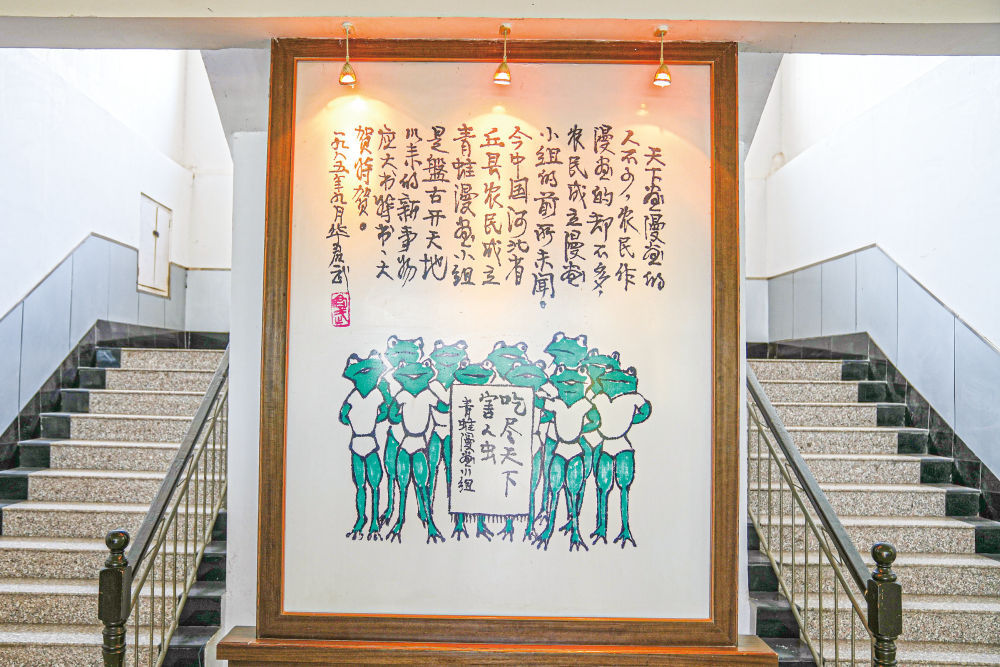 天下画漫画的
人不少，农民作
漫画的却不多，
农民成立漫画
小组的前所未闻。
今中国河北省
丘县农民成立
青蛙漫画小组
是盤古开天地
以来的新事物
应大书特书、大
贺特贺。
一九八五年九月华君武
君武
吃尽天下
害人虫
青蛙漫画小组